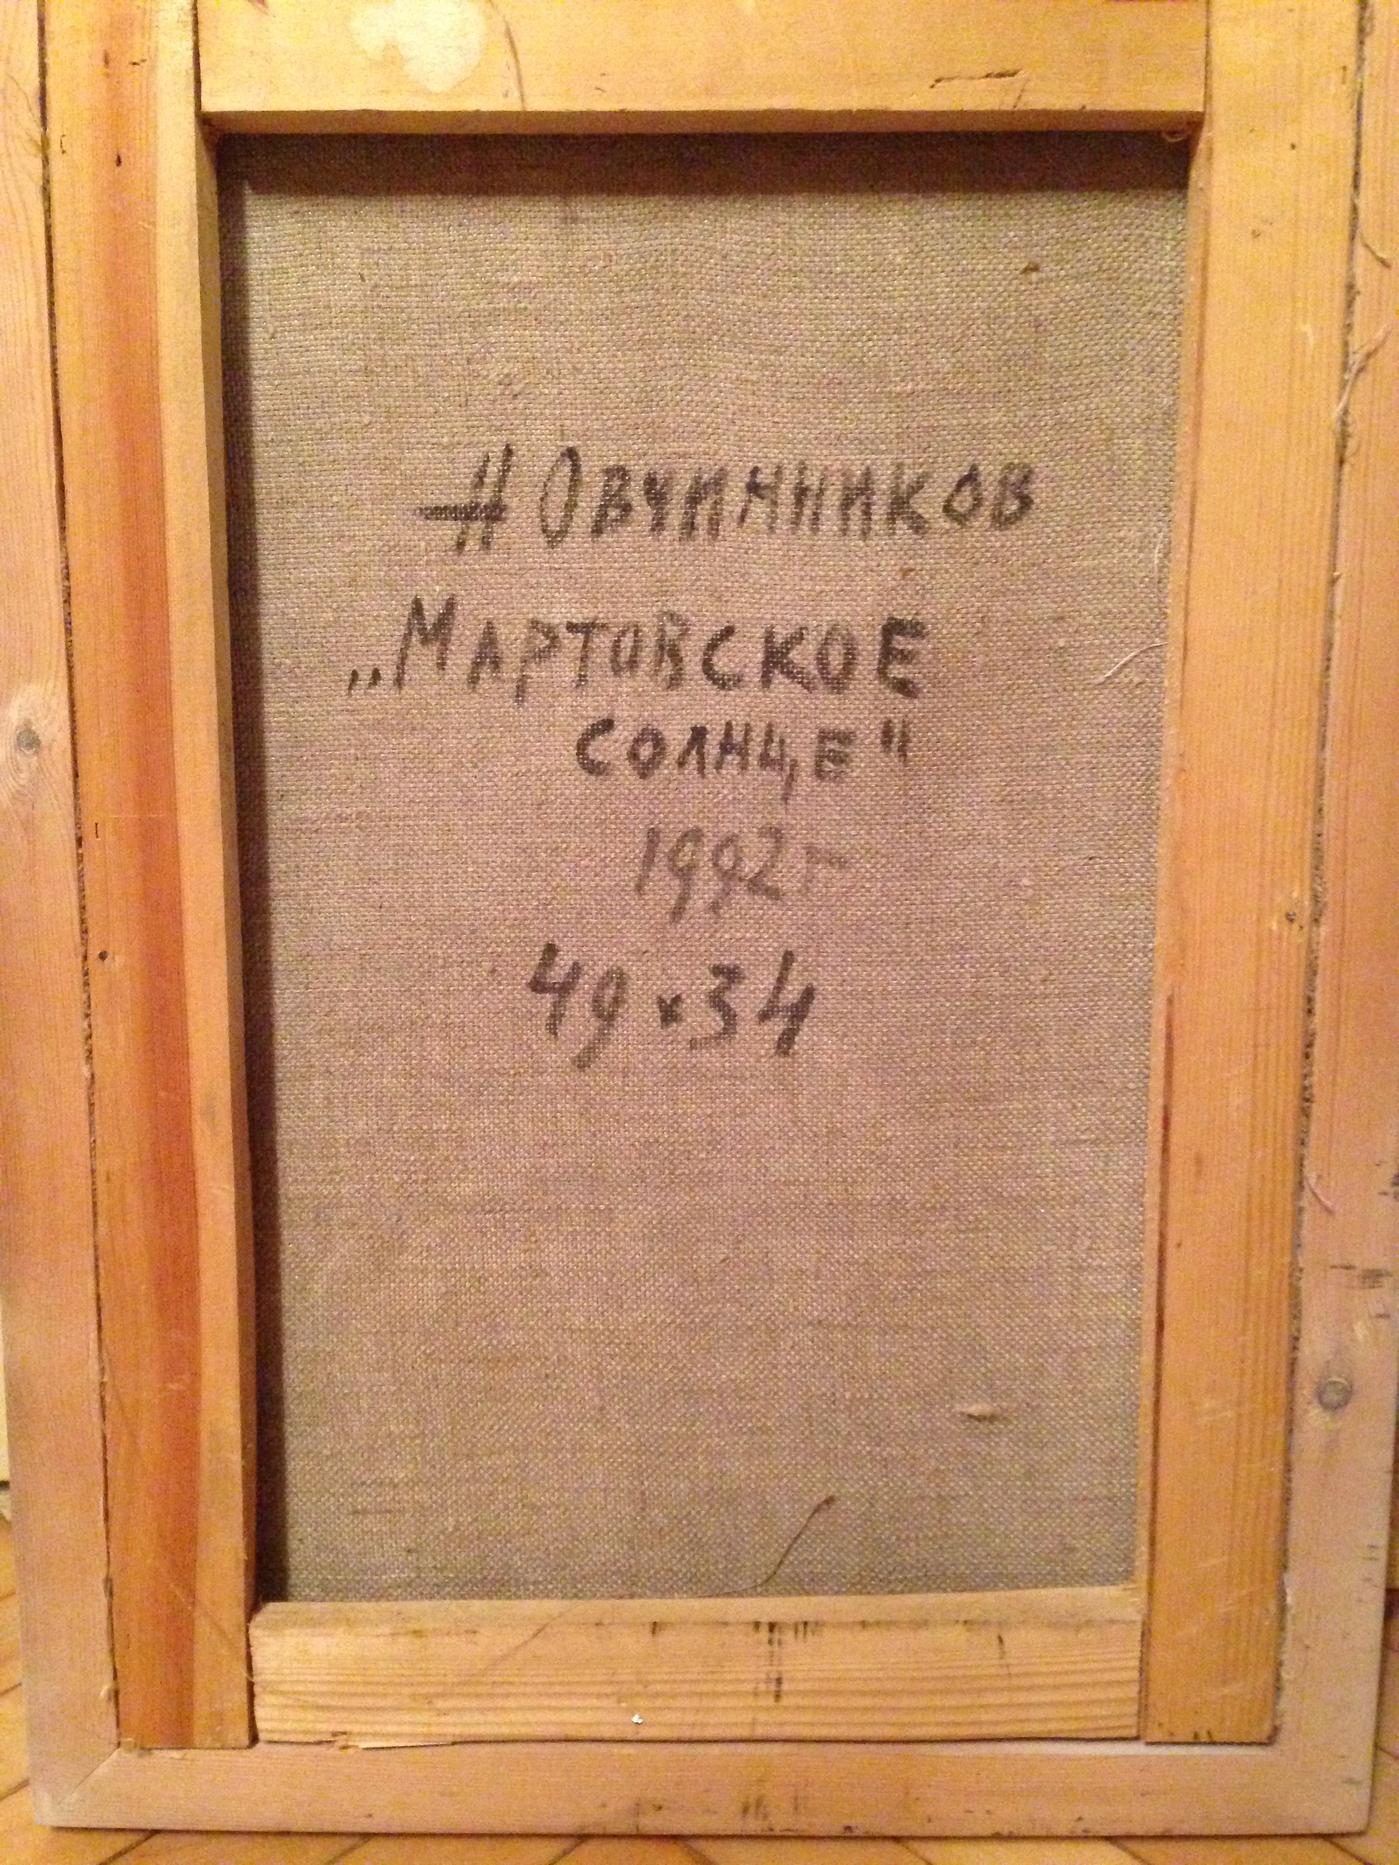 Н Овчинников
„Мартовское
солнце"
1992г
49×34